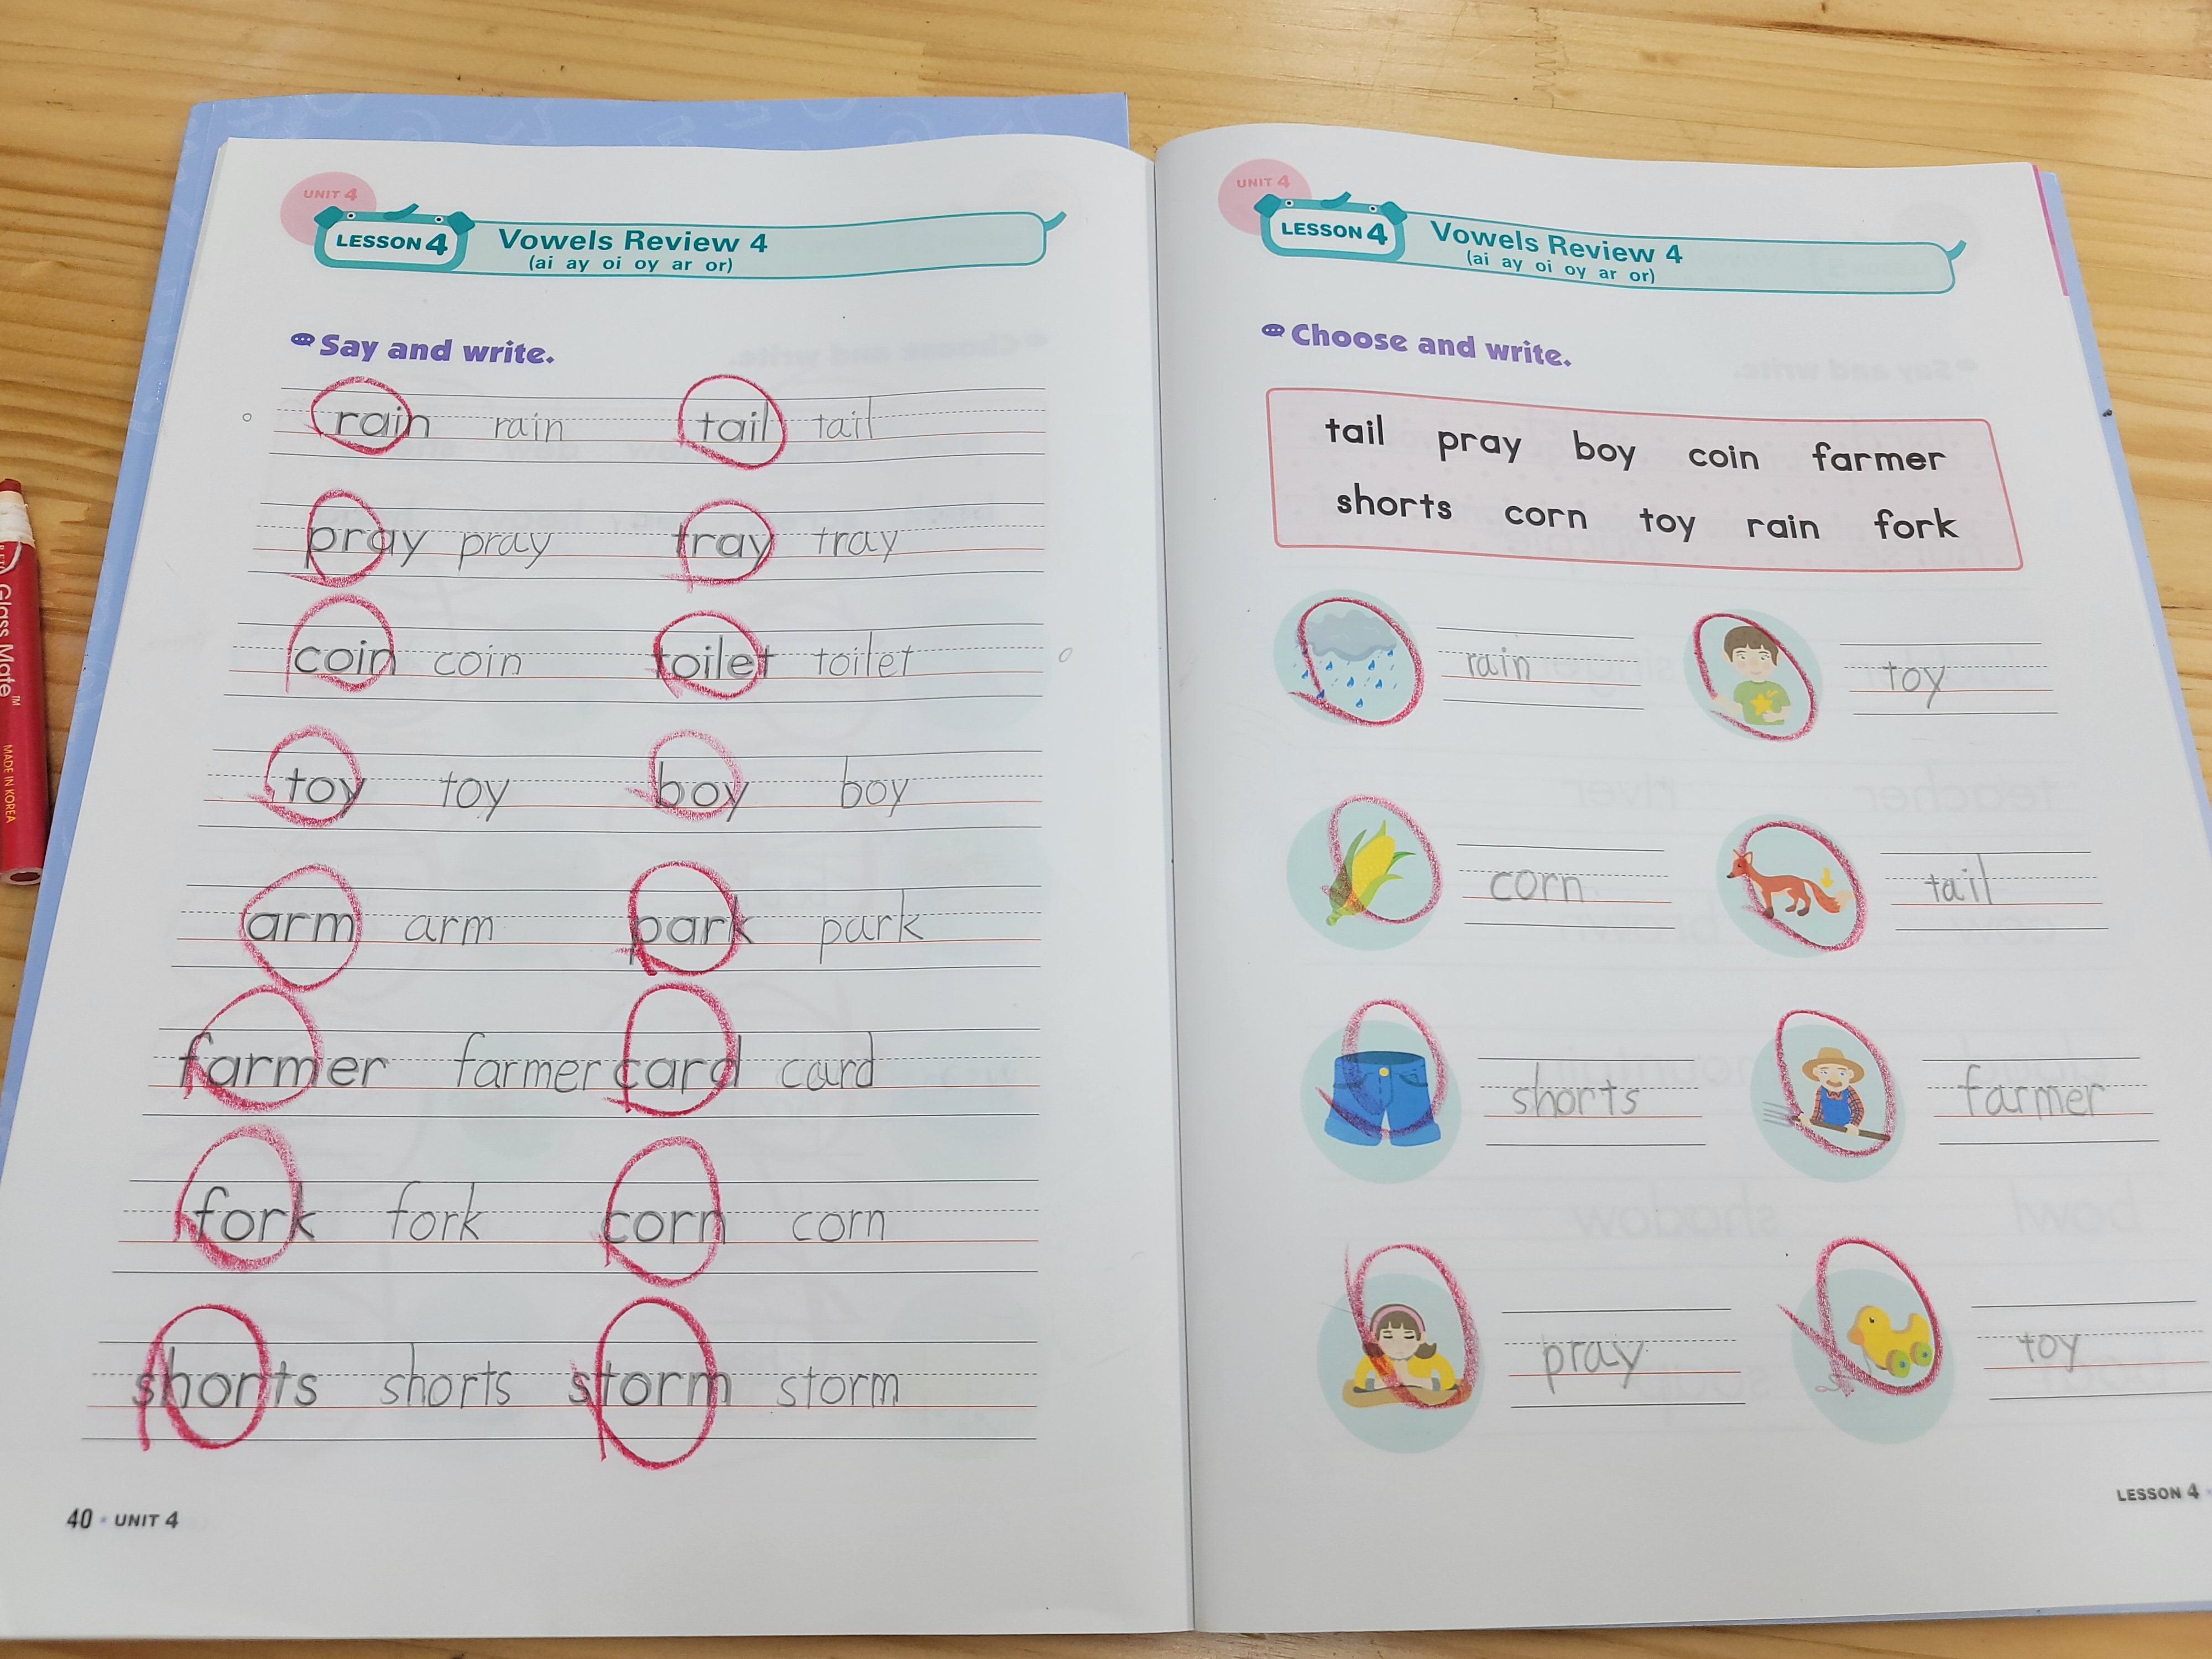 UNIT 4
LESSON 4 Vowels Review 4
(ai ay oi oy ar or)
Say and write.
rain rain tail tail
pray pray tray tray
coin coin toilet toilet
toy toy boy boy
arm arm park park
farmer farmer card card
fork fork corn corn
shorts shorts storm storm
40 • UNIT 4
UNIT 4
LESSON 4 Vowels Review 4
(ai ay oi oy ar or)
Choose and write.
tail pray boy coin farmer
shorts corn toy rain fork
rain toy
corn tail
shorts farmer
pray toy
LESSON 4
Glass Mate™
MADE IN KOREA